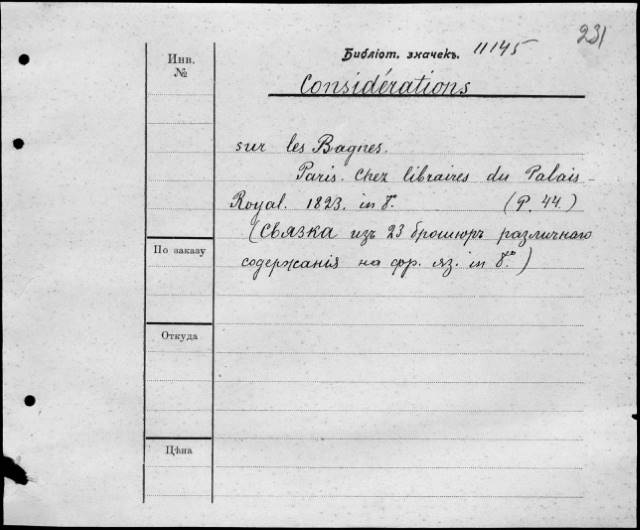 231
Инв.
№
Библіот. значекъ. 11145
Considérations
sur les Bagnes.
Paris. Chez libraires du Palais-
Royal. 1823. in 8°. (P. 44.)
(Связка изъ 23 брошюръ различнаго
содержанія на фр. яз. in 8°.)
По заказу
Откуда
Цѣна